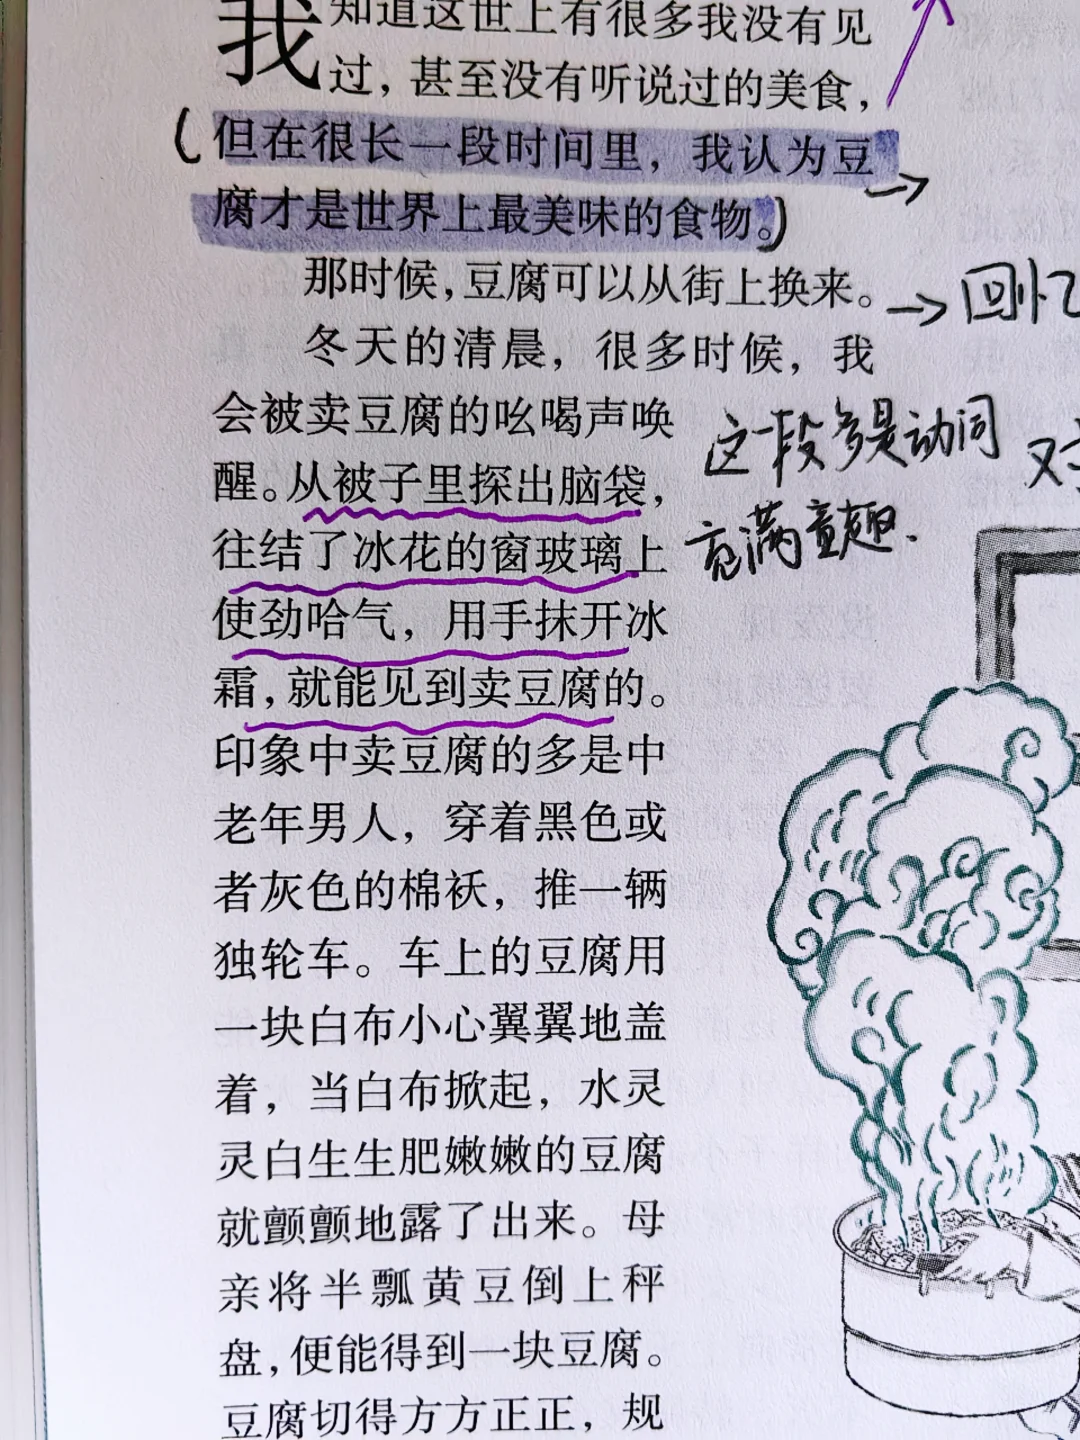 我知道这世上有很多我没有见
过，甚至没有听说过的美食，
（但在很长一段时间里，我认为豆
腐才是世界上最美味的食物。）
那时候，豆腐可以从街上换来。→回忆
冬天的清晨，很多时候，我
会被卖豆腐的吆喝声唤
醒。从被子里探出脑袋，
往结了冰花的窗玻璃上
使劲哈气，用手抹开冰
霜，就能见到卖豆腐的。
印象中卖豆腐的多是中
老年男人，穿着黑色或
者灰色的棉袄，推一辆
独轮车。车上的豆腐用
一块白布小心翼翼地盖
着，当白布掀起，水灵
灵白生生肥嫩嫩的豆腐
就颤颤地露了出来。母
亲将半瓢黄豆倒上秤
盘，便能得到一块豆腐。
豆腐切得方方正正，规
这一段多是动词
充满童趣.